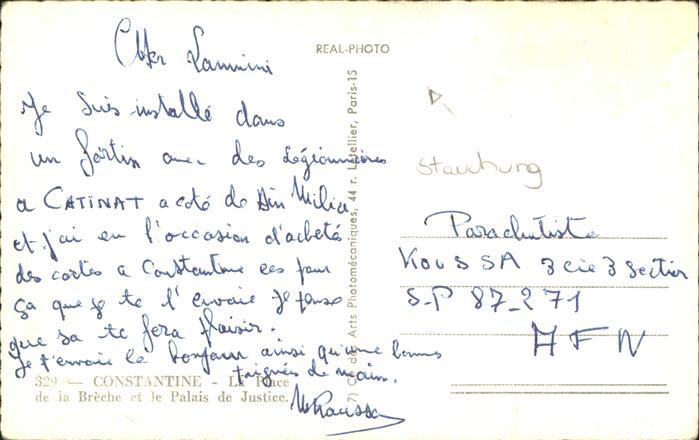 REAL-PHOTO
Cher Lamini
Je suis installé dans
un fortin avec des Légionnaires
a CATINAT a coté de Ain Milia
et j'ai eu l'occasion d'acheté
des cartes a Constantine ces pour
ça que je te l'envoie je pense
que sa te fera plaisir.
Je t'envoie le bonjour ainsi qu'une bonnes
poignés de main.
329 — CONSTANTINE - La Place
de la Brèche et le Palais de Justice.
des Arts Photomécaniques, 44 r. Letellier, Paris-15
Stauchung
Parachutiste
KOUSSA 3 cie 3 Section
S-P 87-271
AFN